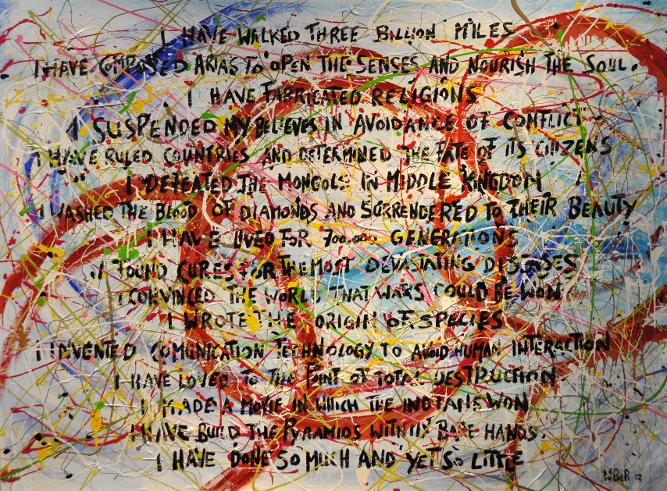 I HAVE WALKED THREE BILLION MILES
I HAVE COMPOSED ARIAS TO OPEN THE SENSES AND NOURISH THE SOUL.
I HAVE FABRICATED RELIGIONS
I SUSPENDED MY BELIEVES IN AVOIDANCE OF CONFLICT
I HAVE RULED COUNTRIES AND DETERMINED THE FATE OF ITS CITIZENS
I DEFEATED THE MONGOLS IN MIDDLE KINGDOM
I WASHED THE BLOOD OF DIAMONDS AND SURRENDERED TO THEIR BEAUTY
I HAVE LIVED FOR 700.000 GENERATIONS
I FOUND CURES FOR THE MOST DEVASTATING DISEASES
I CONVINCED THE WORLD THAT WARS COULD BE WON
I WROTE THE ORIGIN OF SPECIES
I INVENTED COMUNICATION TECHNOLOGY TO AVOID HUMAN INTERACTION
I HAVE LOVED TO THE POINT OF TOTAL DESTRUCTION
I MADE A MOVIE IN WHICH THE INDIANS WON
I HAVE BUILD THE PYRAMIDS WITH MY BARE HANDS.
I HAVE DONE SO MUCH AND YET SO LITTLE